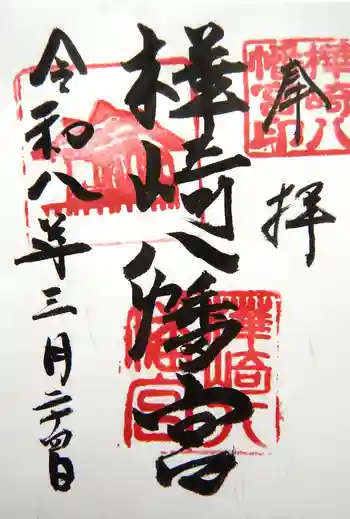 奉拝
樺崎八幡宮
令和八年三月二十四日
樺崎八幡宮印
樺崎八幡宮